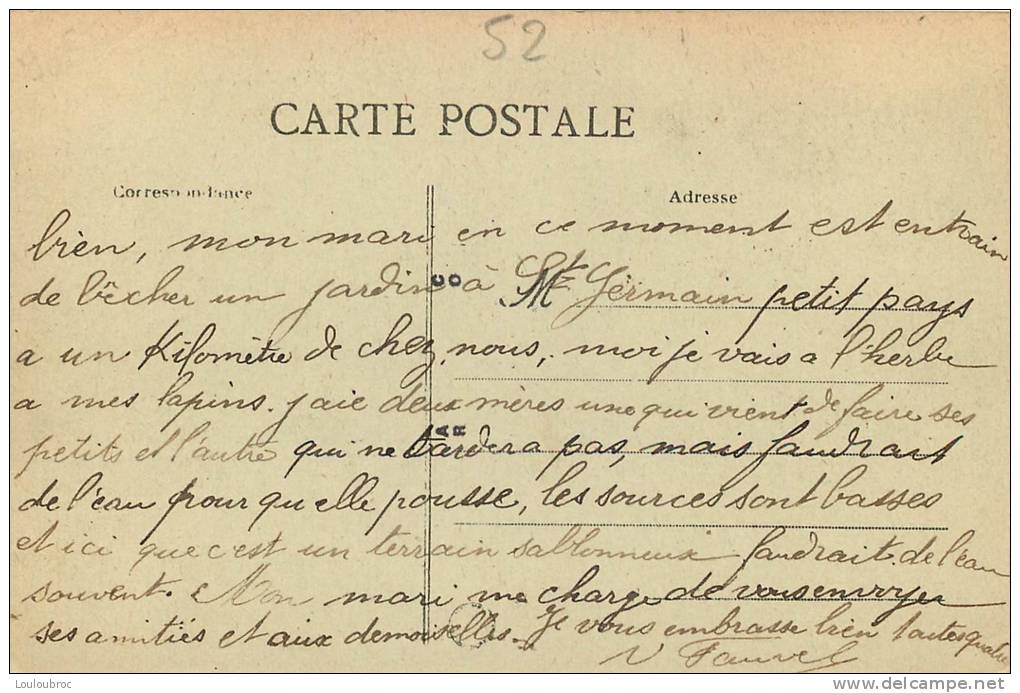 52
CARTE POSTALE
Correspondance
Adresse
bien, mon mari en ce moment est entrain
de bêcher un jardin à St Germain petit pays
a un Kilomètre de chez nous, moi je vais a l'herbe
a mes lapins. j'aie deux mères une qui vient de faire ses
petits et l'autre qui ne tardera pas, mais faudrait
de l'eau pour qu elle pousse, les sources sont basses
et ici que c'est un terrain sablonneux faudrait de l'eau
souvent. Mon mari me charge de vous envoyer
ses amitiés et aux demoiselles. Je vous embrasse bien toutes quatre
V Fauvel
Louloubroc
www.delcampe.net